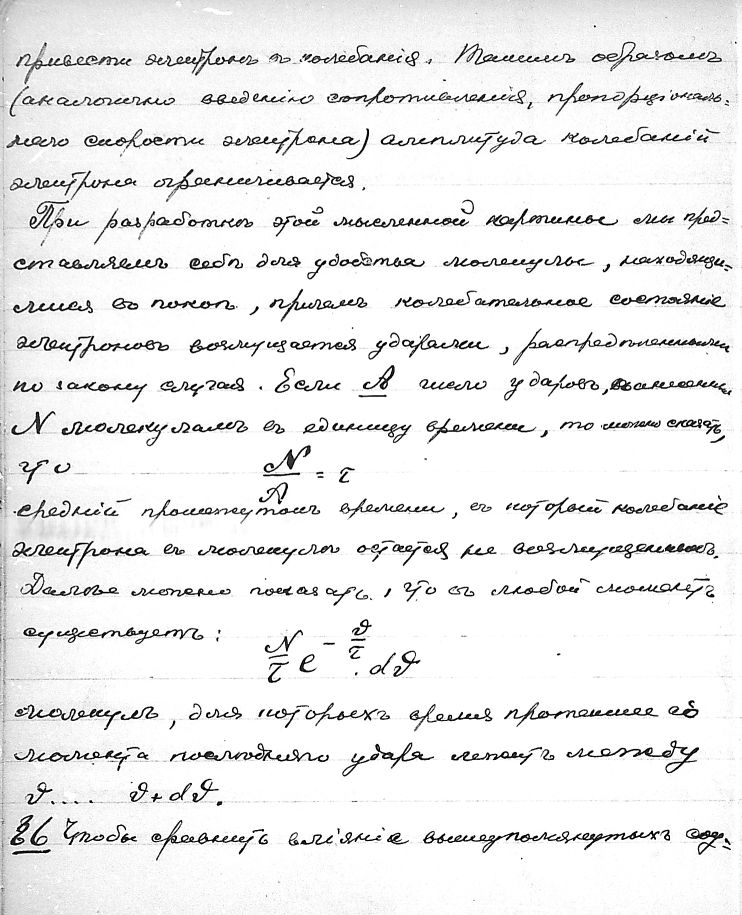 привести электронъ въ колебанія. Такимъ образомъ
(аналогично введенію сопротивленія, пропорціональ=
наго скорости электрона) амплитуда колебаній
электрона ограничивается.
При разработкѣ этой мысленной картины мы пред=
ставляемъ себѣ для удобства молекулы, находящи=
мися въ покоѣ, причемъ колебательное состояніе
электроновъ возмущается ударами, распредѣленными
по закону случая. Если A число ударовъ, нанесенныхъ
N молекуламъ въ единицу времени, то можно сказать,
что N/A = τ
средній промежутокъ времени, въ который колебаніе
электрона въ молекулѣ остается не возмущеннымъ.
Далѣе можно показать, что въ любой моментъ
существуетъ: N/τ e^{-ϑ/τ} . dϑ
молекулъ, для которыхъ время протекшее до
момента послѣдняго удара лежитъ между
ϑ.... ϑ+dϑ.
§6 Чтобы сравнить вліяніе вышеупомянутыхъ